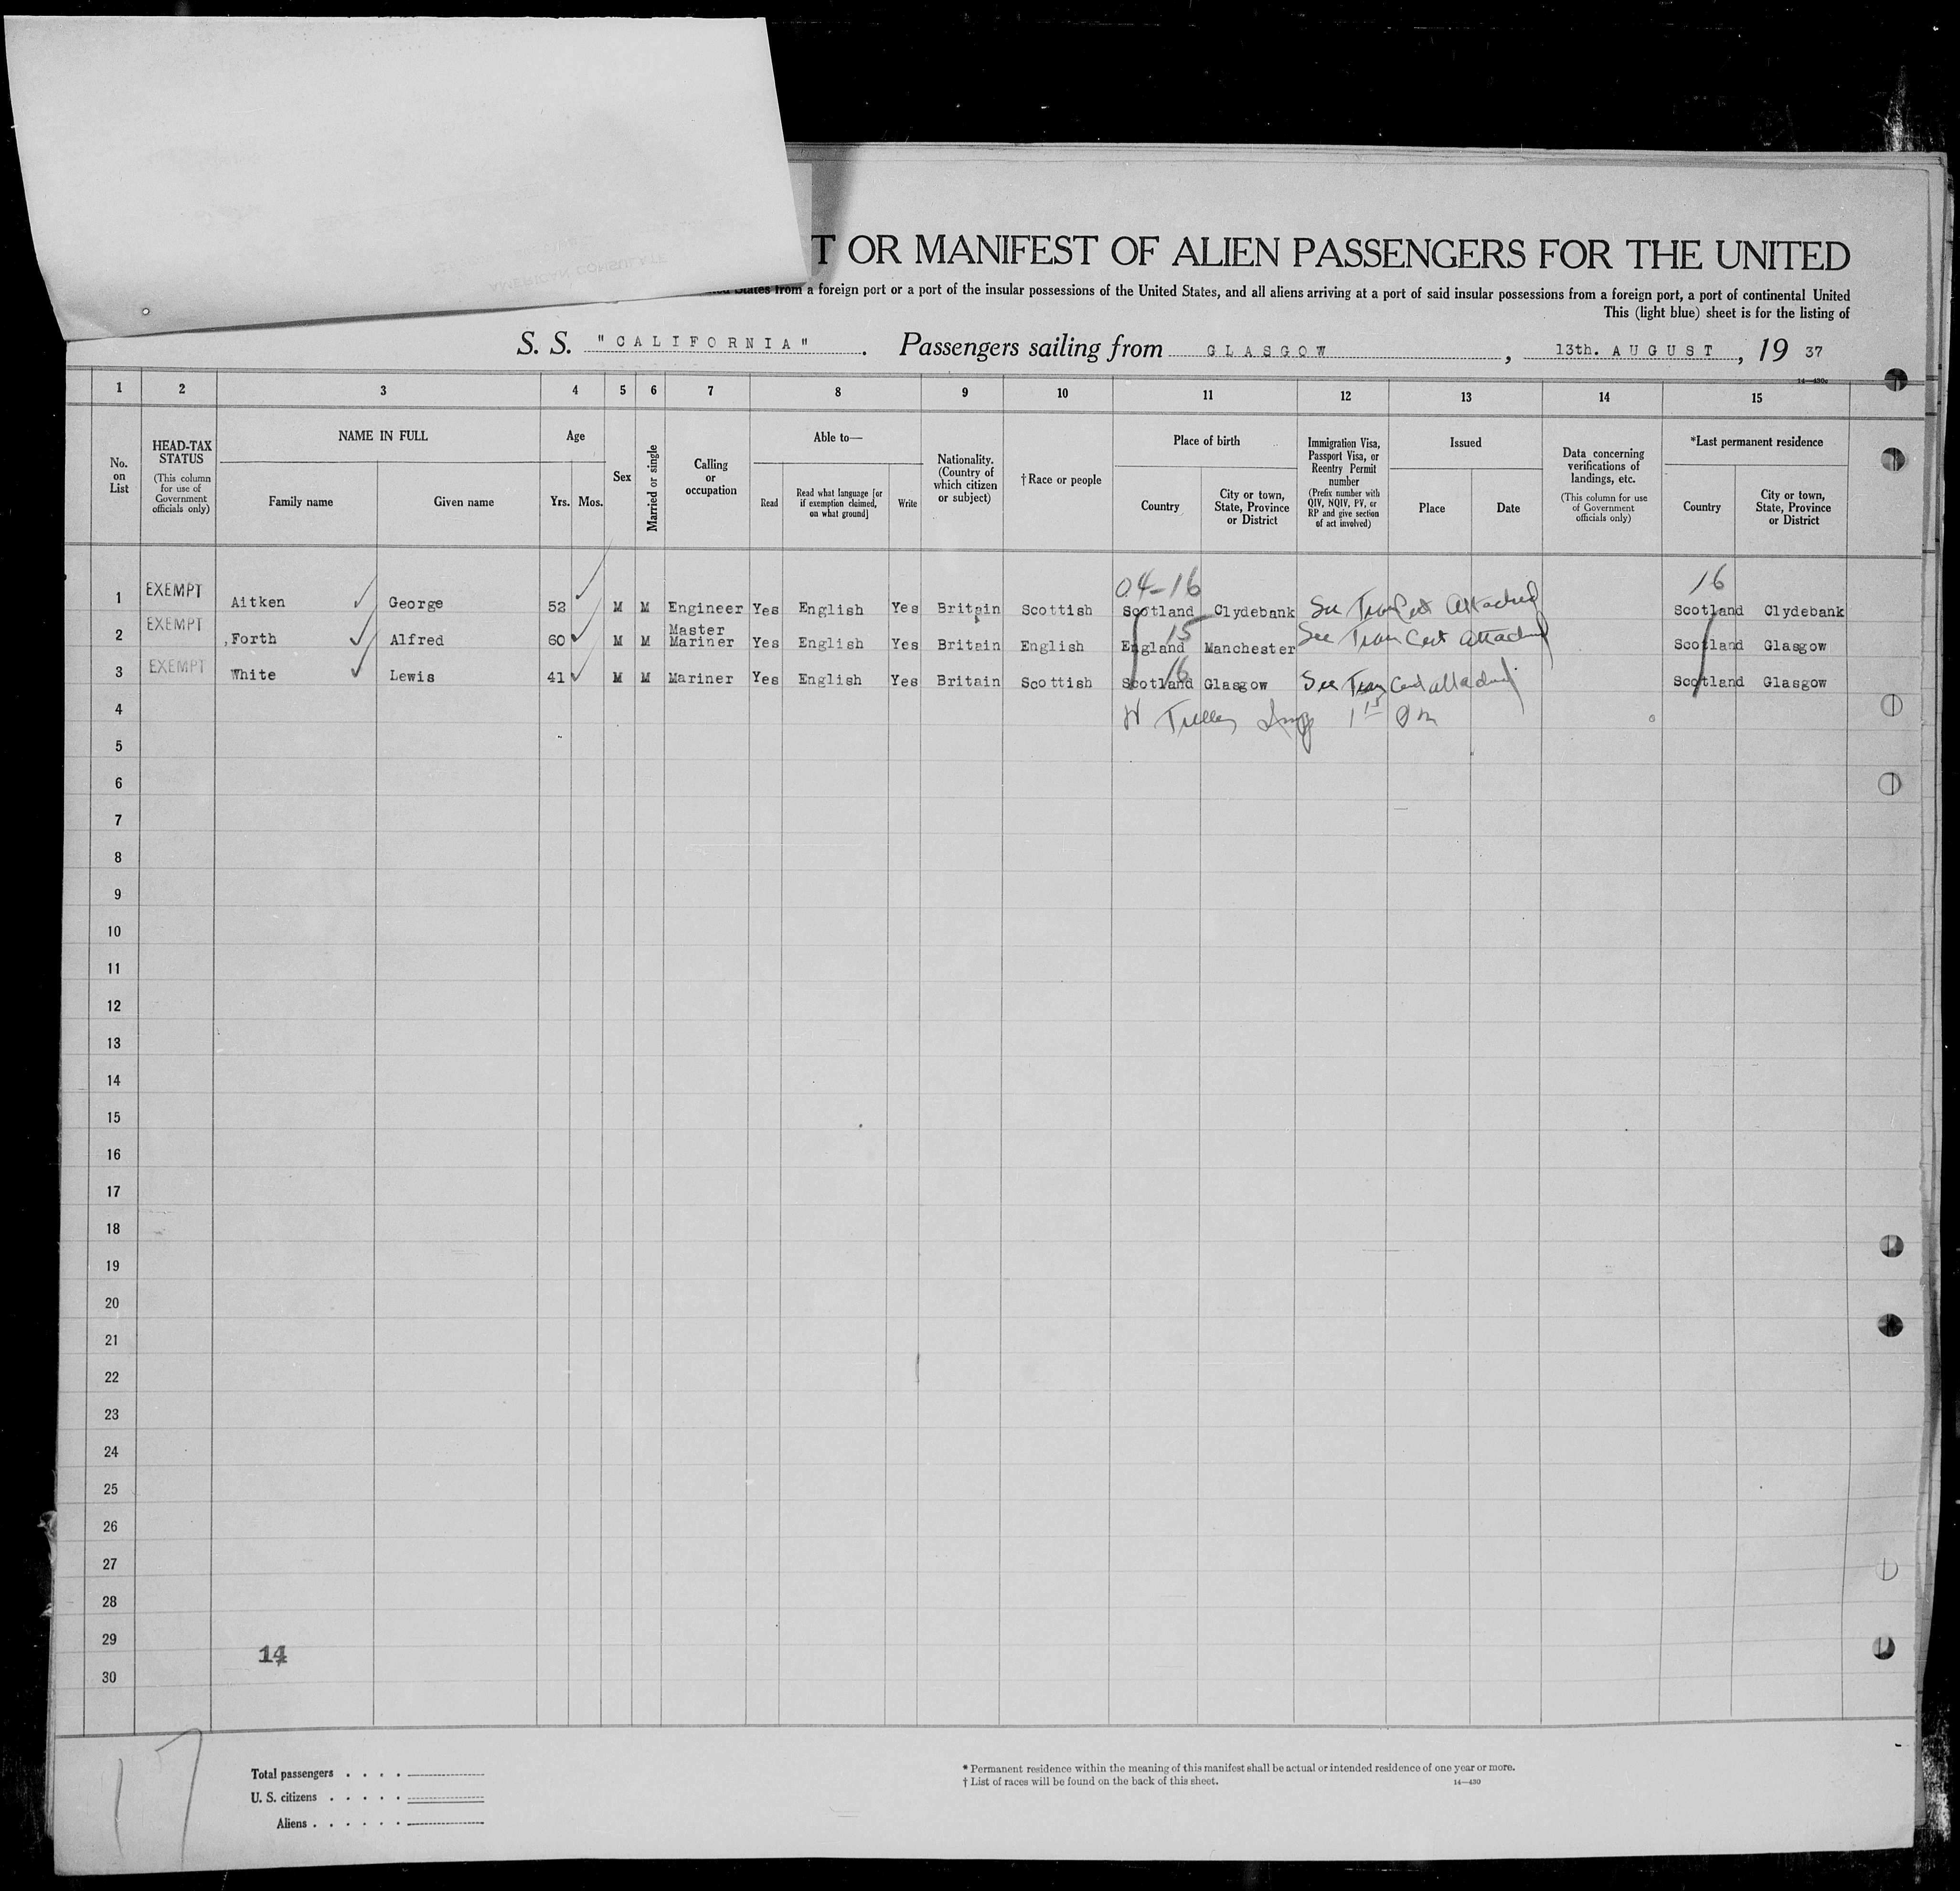 AMERICAN CONSULATE
T OR MANIFEST OF ALIEN PASSENGERS FOR THE UNITED
States from a foreign port or a port of the insular possessions of the United States, and all aliens arriving at a port of said insular possessions from a foreign port, a port of continental United
This (light blue) sheet is for the listing of
S. S. "CALIFORNIA". Passengers sailing from GLASGOW, 13th. AUGUST, 19 37
14—430c
1 2 3 4 5 6 7 8 9 10 11 12 13 14 15
No. on List
HEAD-TAX STATUS
(This column for use of Government officials only)
NAME IN FULL
Family name
Given name
Age
Yrs. Mos.
Sex
Married or single
Calling or occupation
Able to—
Read
Read what language [or if exemption claimed, on what ground]
Write
Nationality. (Country of which citizen or subject)
†Race or people
Place of birth
Country
City or town, State, Province or District
Immigration Visa, Passport Visa, or Reentry Permit number
(Prefix number with QIV, NQIV, PV, or RP and give section of act involved)
Issued
Place
Date
Data concerning verifications of landings, etc.
(This column for use of Government officials only)
*Last permanent residence
Country
City or town, State, Province or District
04-16 16
1 EXEMPT Aitken George 52 M M Engineer Yes English Yes Britain Scottish Scotland Clydebank See Tran Cert Attached Scotland Clydebank
15
2 EXEMPT Forth Alfred 60 M M Master Mariner Yes English Yes Britain English England Manchester See Tran Cert attached Scotland Glasgow
16
3 EXEMPT White Lewis 41 M M Mariner Yes English Yes Britain Scottish Scotland Glasgow See Tran Cert attached Scotland Glasgow
4
5
6
7
8
9
10
11
12
13
14
15
16
17
18
19
20
21
22
23
24
25
26
27
28
29
14
30
17
Total passengers . . . .
U. S. citizens . . . . .
Aliens . . . . . .
* Permanent residence within the meaning of this manifest shall be actual or intended residence of one year or more.
† List of races will be found on the back of this sheet. 14—430